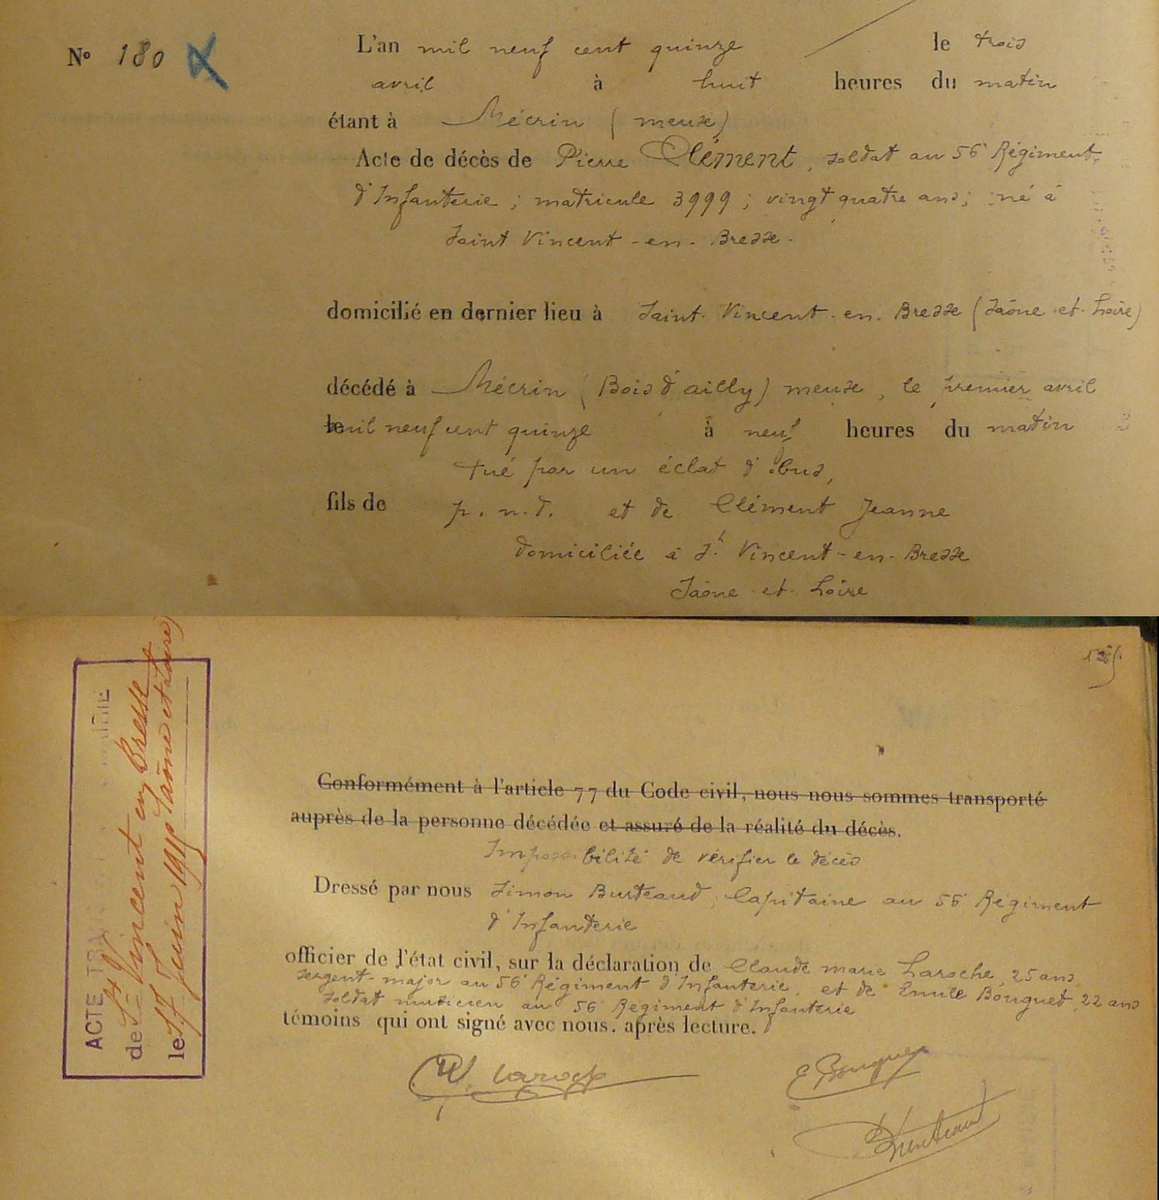 N° 180
L'an mil neuf cent quinze le trois
avril à huit heures du matin
étant à Mécrin (meuse)
Acte de décès de Pierre Clément, soldat au 56e Régiment
d'Infanterie ; matricule 3999 ; vingt quatre ans ; né à
Saint Vincent-en-Bresse.
domicilié en dernier lieu à Saint-Vincent-en-Bresse (Saône-et-Loire)
décédé à Mécrin (Bois d'ailly) meuse, le premier avril
mil neuf cent quinze à neuf heures du matin
tué par un éclat d'obus,
fils de p. n. d. et de Clément Jeanne
domiciliée à St Vincent-en-Bresse
Saône-et-Loire
ACTE
de St Vincent en Bresse
le 17 Juin 1915 (Saône et Loire)
Conformément à l'article 77 du Code civil, nous nous sommes transporté
auprès de la personne décédée et assuré de la réalité du décès.
Impossibilité de vérifier le décès
Dressé par nous Simon Burteaud, Capitaine au 56e Régiment
d'Infanterie
officier de l'état civil, sur la déclaration de Claude marie Laroche, 25 ans,
sergent-major au 56e Régiment d'Infanterie, et de Emile Bouguet, 22 ans
soldat musicien au 56e Régiment d'Infanterie
témoins qui ont signé avec nous, après lecture.
Laroche E Bouguet
Burteaud